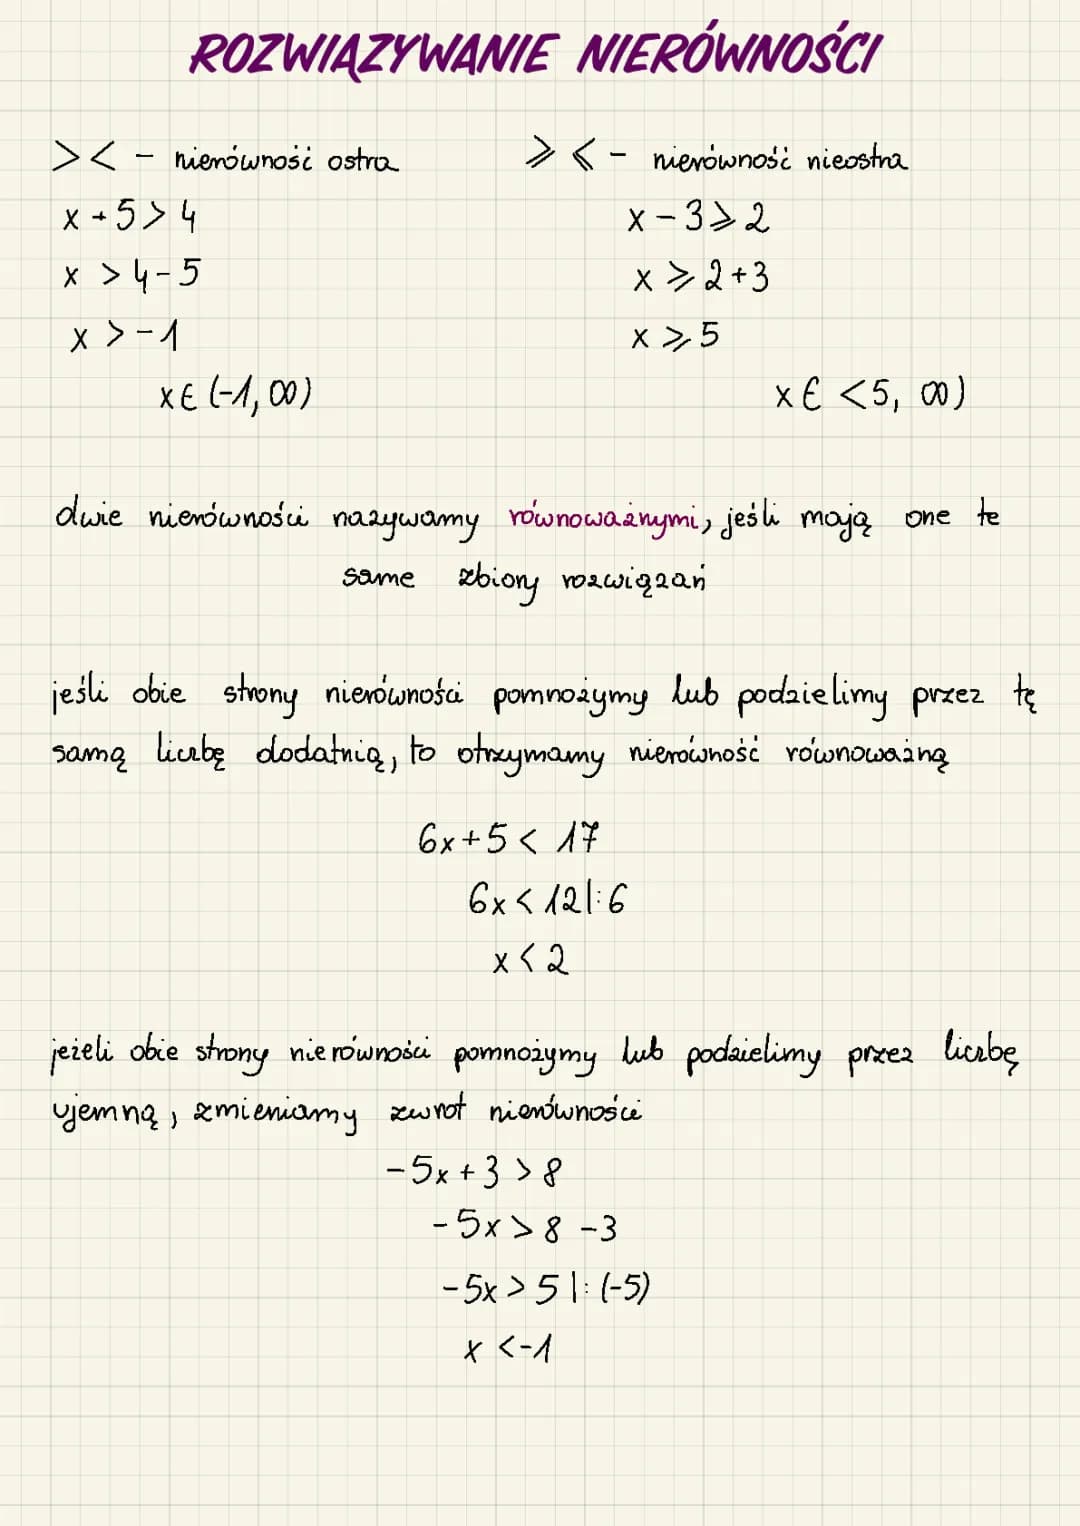 ROZWIĄZYWANIE NIERÓWNOŚCI
> < - nierówność ostra
x + 5 > 4
x > 4 - 5
x > -1
x ∈ (-1, ∞)
⩾ ⩽ - nierówność nieostra
x - 3 ⩾ 2
x ⩾ 2 + 3
x ⩾ 5
x ∈ <5, ∞)
dwie nierówności nazywamy równoważnymi, jeśli mają one te
same zbiory rozwiązań
jeśli obie strony nierówności pomnożymy lub podzielimy przez tę
samą liczbę dodatnią, to otrzymamy nierówność równoważną
6x + 5 < 17
6x < 12 |: 6
x < 2
jeżeli obie strony nierówności pomnożymy lub podzielimy przez liczbę
ujemną, zmieniamy zwrot nierówności
-5x + 3 > 8
-5x > 8 - 3
-5x > 5 |: (-5)
x < -1